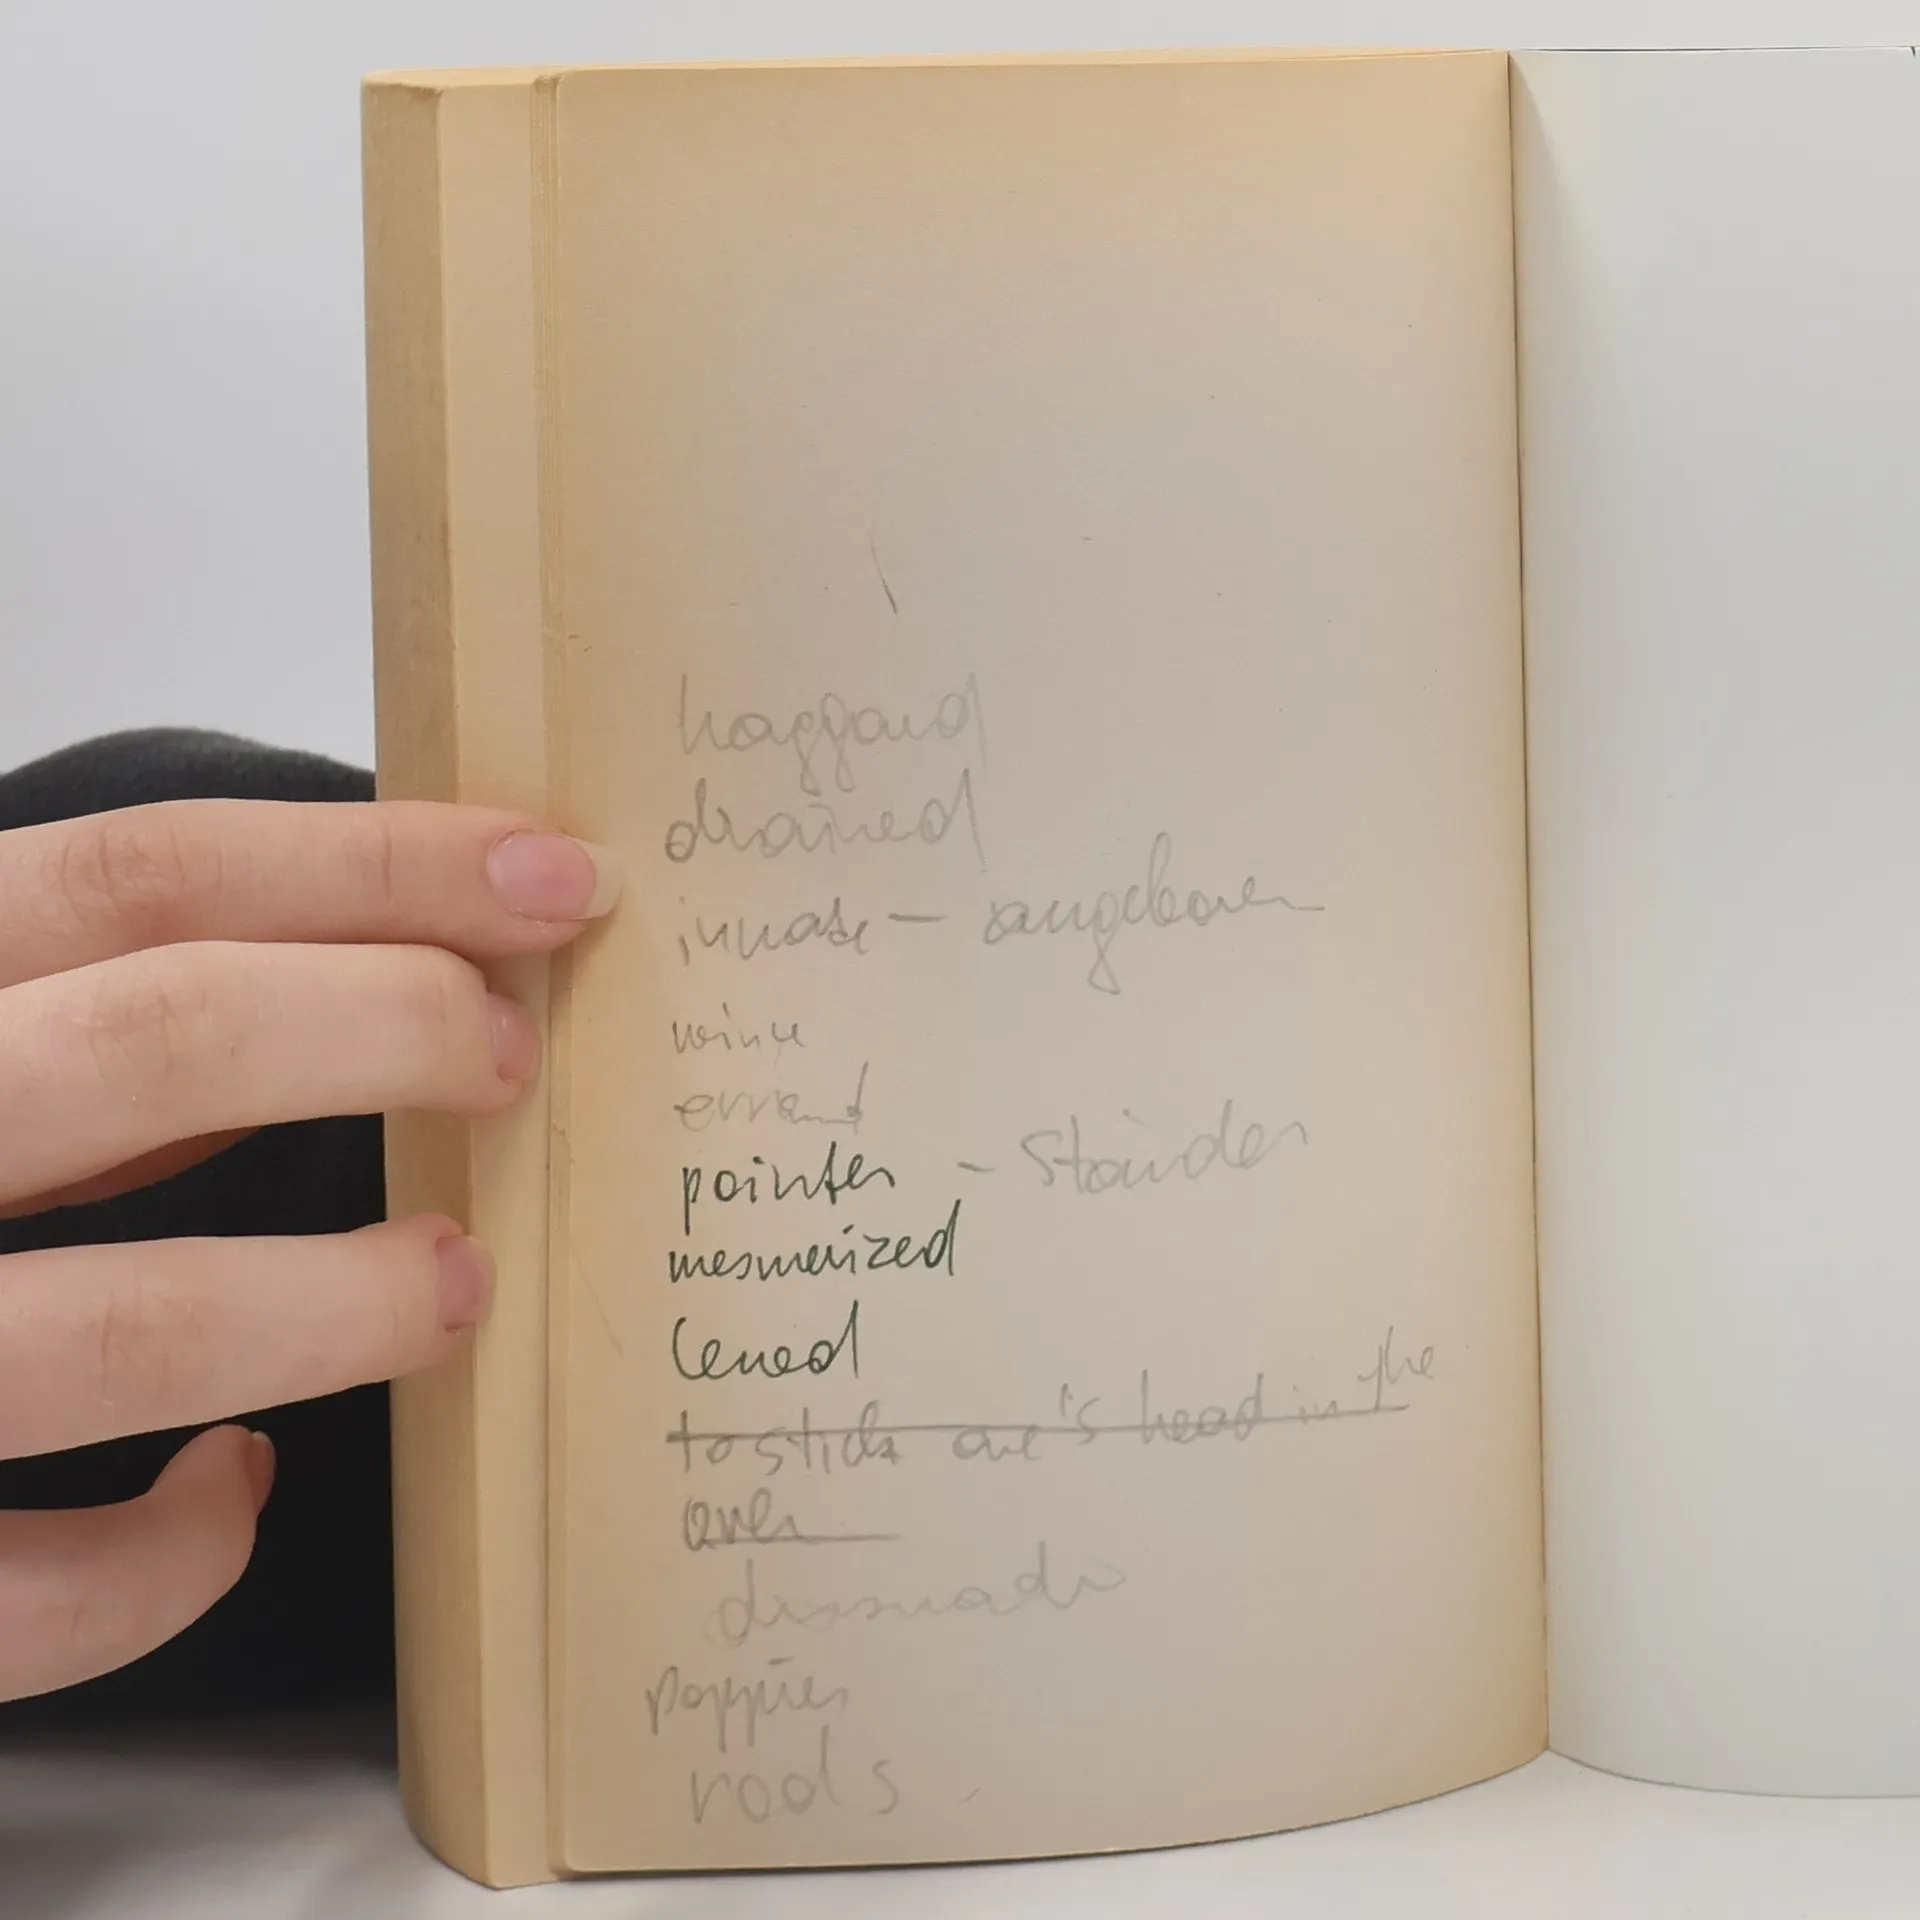 haggard
drained
innate - angeboren
wince
errand
pointer - Ständer
mesmerized
to stick one's head in the
oven
dissuade
poppies
rods